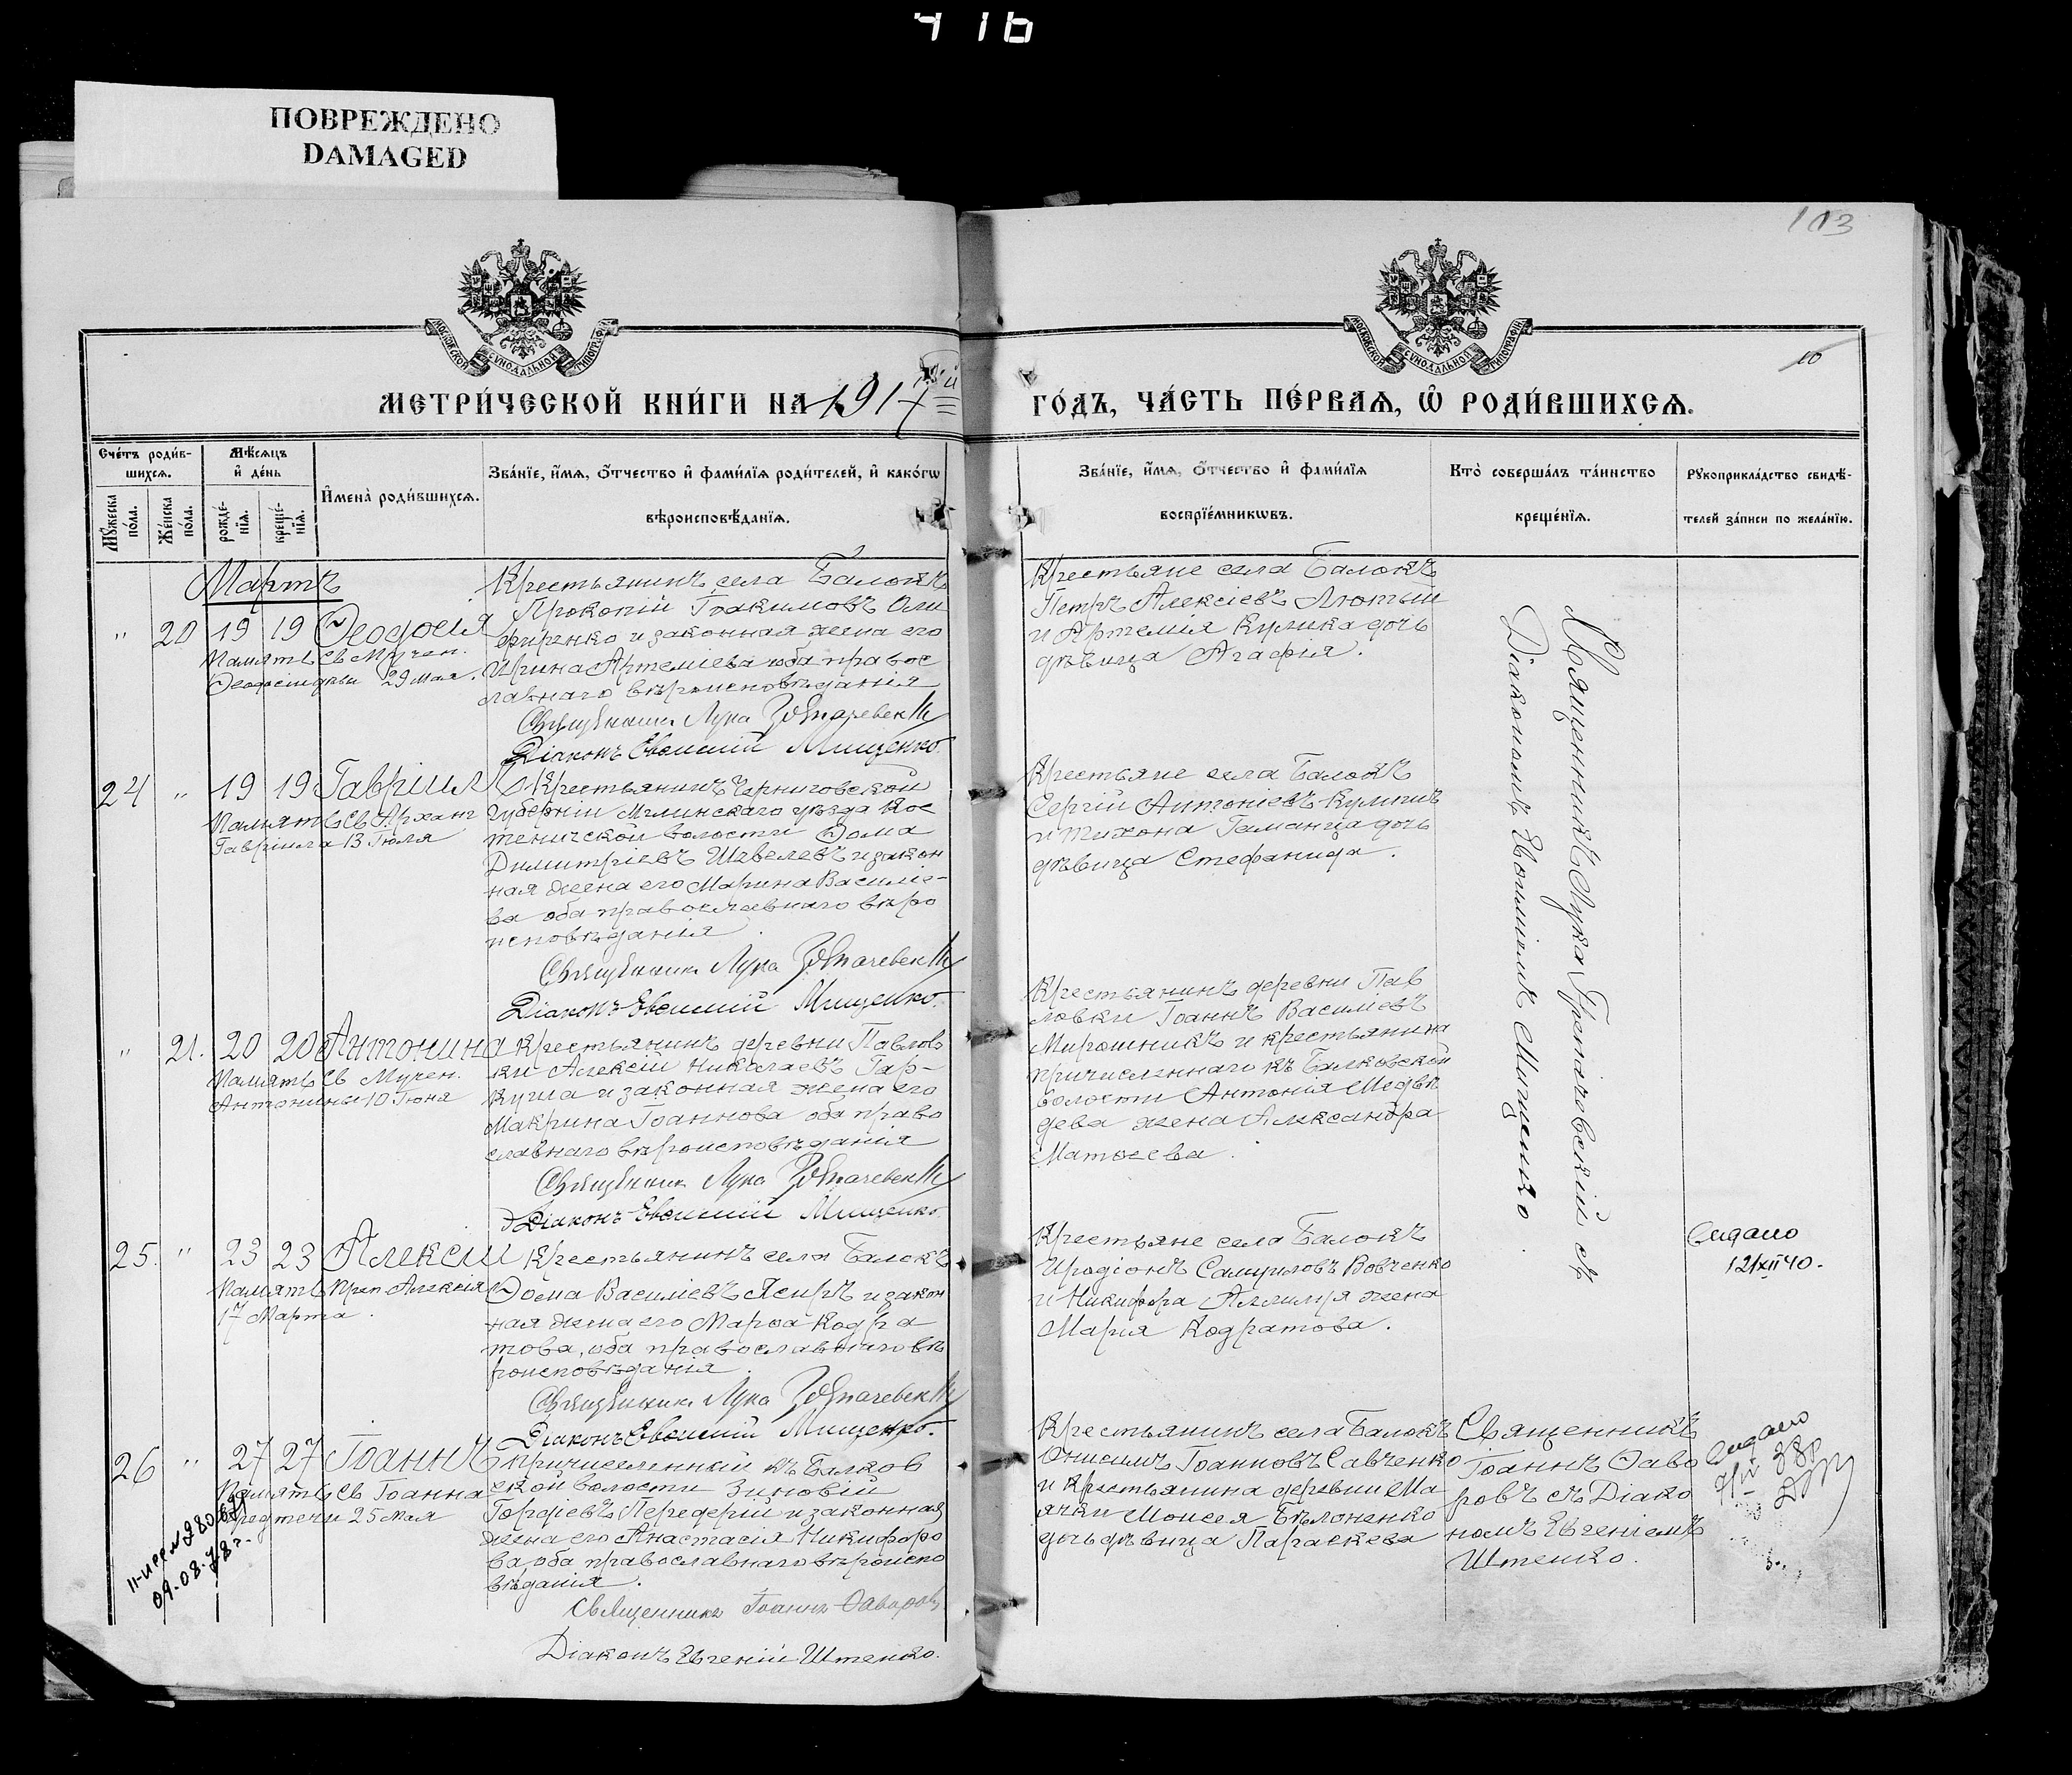 416
ПОВРЕЖДЕНО
DAMAGED
113
10
МОСКОВСКОЙ СѴНОДАЛЬНОЙ ТИПОГРАФІИ
МОСКОВСКОЙ СѴНОДАЛЬНОЙ ТИПОГРАФІИ
МЕТРИ́ЧЕСКОЙ КНИ́ГИ НА 1917
ГО́ДЪ, ЧА́СТЬ ПЕ́РВАѦ, Ѽ РОДИ́ВШИХСѦ.
Сче́тъ роди́в-
шихсѧ.
Мꙋ́жеска по́ла.
Же́нска по́ла.
Мѣ́сѧцъ
и҆ де́нь
рожде́-
нїѧ.
креще́-
нїѧ.
И҆мена̀ роди́вшихсѧ.
Зва́нїе, и҆́мѧ, ѻ҆́тчество и҆ фами́лїѧ роди́телей, и҆ како́гѡ
вѣроисповѣ́данїѧ.
Зва́нїе, и҆́мѧ, ѻ҆́тчество и҆ фами́лїѧ
воспрїе́мникѡвъ.
Кто̀ соверша́лъ та́инство
креще́нїѧ.
Рꙋкоприкла́дство свидѣ́-
телей за́писи по жела́нїю.
Мартъ
" 20 19 19 Ѳеодосія
Память Св Мучен.
Ѳеодосіи дѣвы 29 Мая.
Крестьянинъ села Балокъ
Прокопій Іоакимовъ Оли
ференко и законная жена его
Ирина Артеміева оба правос
лавнаго вѣроисповѣданія
Священникъ Лука
Діаконъ Евѳимій Мищенко.
Крестьяне села Балокъ
Петръ Алексіевъ Лютый
и Артемія Кулика дочь
дѣвица Агафія.
24 " 19 19 Гавріилъ
Память Св Арханг
Гавріила 13 Іюля
Крестьянинъ Черниговской
губерніи Мглинскаго уѣзда Кос
теничской волости Ѳома
Димитріевъ Шевелевъ и закон
ная жена его Марина Василіе-
ва оба православнаго вѣро
исповѣданія
Священникъ Лука
Діаконъ Евѳимій Мищенко.
Крестьяне села Балокъ
Сергій Антоніевъ Куликъ
и Тихона Гаманца дочь
дѣвица Стефанида.
" 21. 20 20 Антонина
Память Св Мучен.
Антонины 10 Іюня
Крестьянинъ деревни Павлов
ки Алексій Николаевъ Гар-
куша и законная жена его
Макрина Іоаннова оба право
славнаго вѣроисповѣданія
Священникъ Лука
Діаконъ Евѳимій Мищенко.
Крестьянинъ деревни Пав
ловки Іоаннъ Василіевъ
Мирошникъ и крестьянина
причисленнаго къ Балковской
волости Антонія Медвѣ
дева жена Александра
Матѳеева.
25. " 23 23 Алексій
Память Преп Алексія
17 Марта.
Крестьянинъ села Балокъ
Ѳома Василіевъ Ясиръ и закон
ная жена его Марѳа Кодра
това, оба православнаго вѣ
роисповѣданія
Священникъ Лука
Діаконъ Евѳимій Мищенко.
Крестьяне села Балокъ
Иродіонъ Самуиловъ Вовченко
и Никифора жена
Марія Кодратова.
Священникъ Лука Гречановскій съ
Діакономъ Евѳиміемъ Мищенко.
видано
12/XII 40.
26 " 27 27 Іоаннъ
Память Св Іоанна
Предтечи 25 Мая
Причисленный къ Балков
ской волости Зиновій
Гордіевъ Передерій и законная
жена его Анастасія Никифоро
ва, оба православнаго вѣроиспо
вѣданія.
Священникъ Іоаннъ Ѳаворовъ
Діаконъ Евгеній Штепко.
Крестьянинъ села Балокъ
Онисимъ Іоанновъ Савченко
и крестьянина деревни Ма
ячки Моисея Бѣлоненко
дочь дѣвица Параскева
Священникъ
Іоаннъ Ѳаво
ровъ съ Діако
номъ Евгеніемъ
Штепко.
видано
38р
09.08.78г.